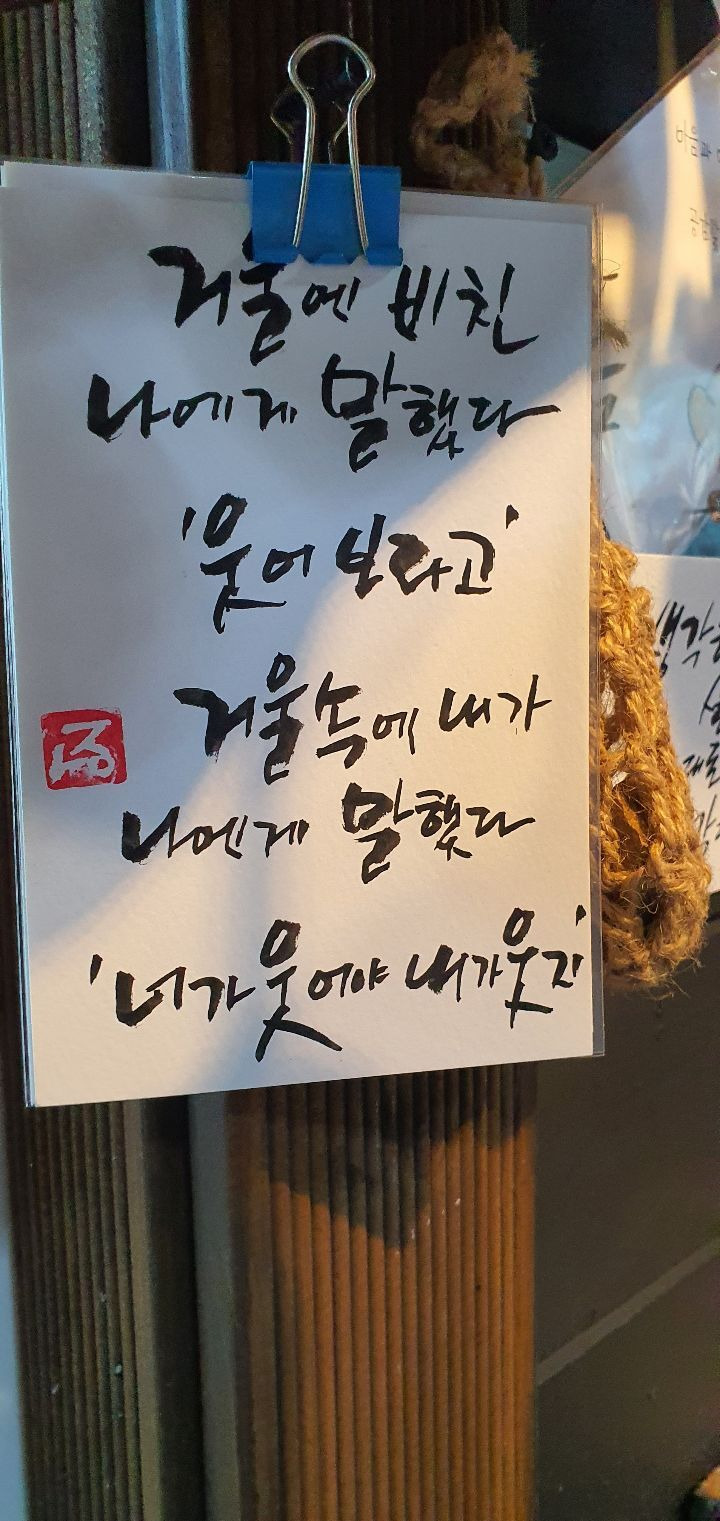 거울에 비친
나에게 말했다
'웃어 보라고'
거울속에 내가
나에게 말했다
'너가 웃어야 내가 웃지'
생각